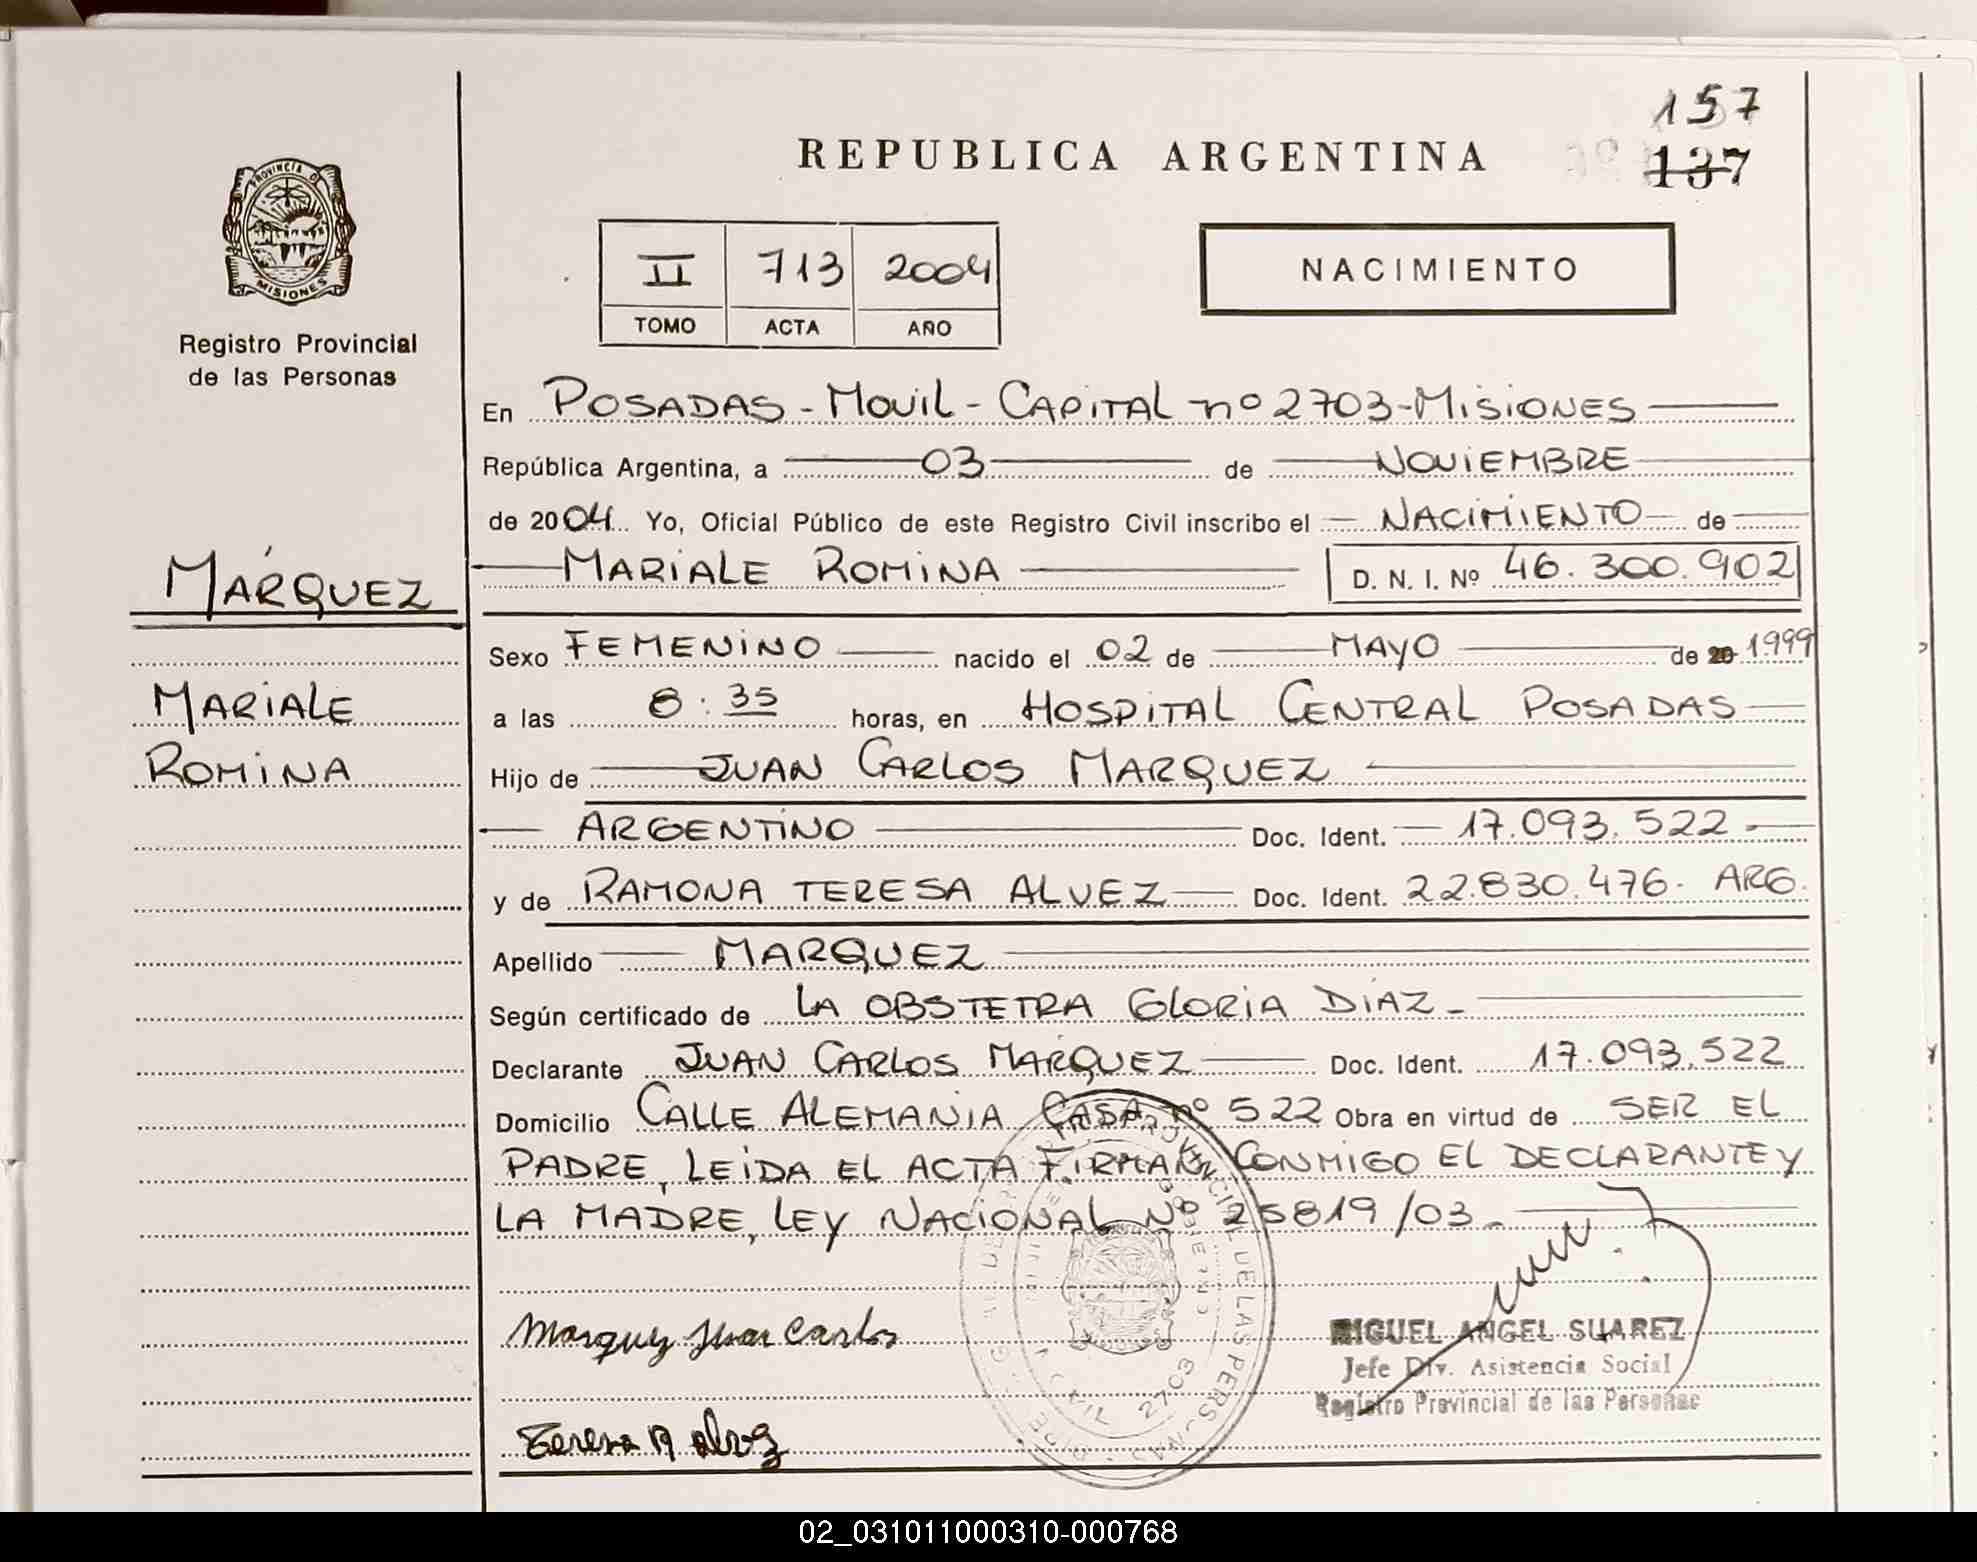 157
REPUBLICA ARGENTINA
137
PROVINCIA D
MISIONES
Registro Provincial
de las Personas
II 713 2004
TOMO ACTA AÑO
NACIMIENTO
En POSADAS - MOVIL - CAPITAL nº 2703 - MISIONES
República Argentina, a 03 de NOVIEMBRE
de 2004 Yo, Oficial Público de este Registro Civil inscribo el NACIMIENTO de
MARIALE ROMINA D. N. I. Nº 46.300.902
MÁRQUEZ
MARIALE
ROMINA
Sexo FEMENINO nacido el 02 de MAYO de 20 1999
a las 8:35 horas, en HOSPITAL CENTRAL POSADAS
Hijo de JUAN CARLOS MARQUEZ
ARGENTINO Doc. Ident. 17.093.522.
y de RAMONA TERESA ALVEZ Doc. Ident. 22.830.476. ARG.
Apellido MARQUEZ
Según certificado de LA OBSTETRA GLORIA DIAZ -
Declarante JUAN CARLOS MARQUEZ Doc. Ident. 17.093.522
Domicilio CALLE ALEMANIA CASA nº 522 Obra en virtud de SER EL
PADRE, LEIDA EL ACTA FIRMAN CONMIGO EL DECLARANTE Y
LA MADRE, LEY NACIONAL Nº 25819/03.
Marquez Juan Carlos
MIGUEL ANGEL SUAREZ
Jefe Div. Asistencia Social
Registro Provincial de las Personas
2703
02_031011000310-000768